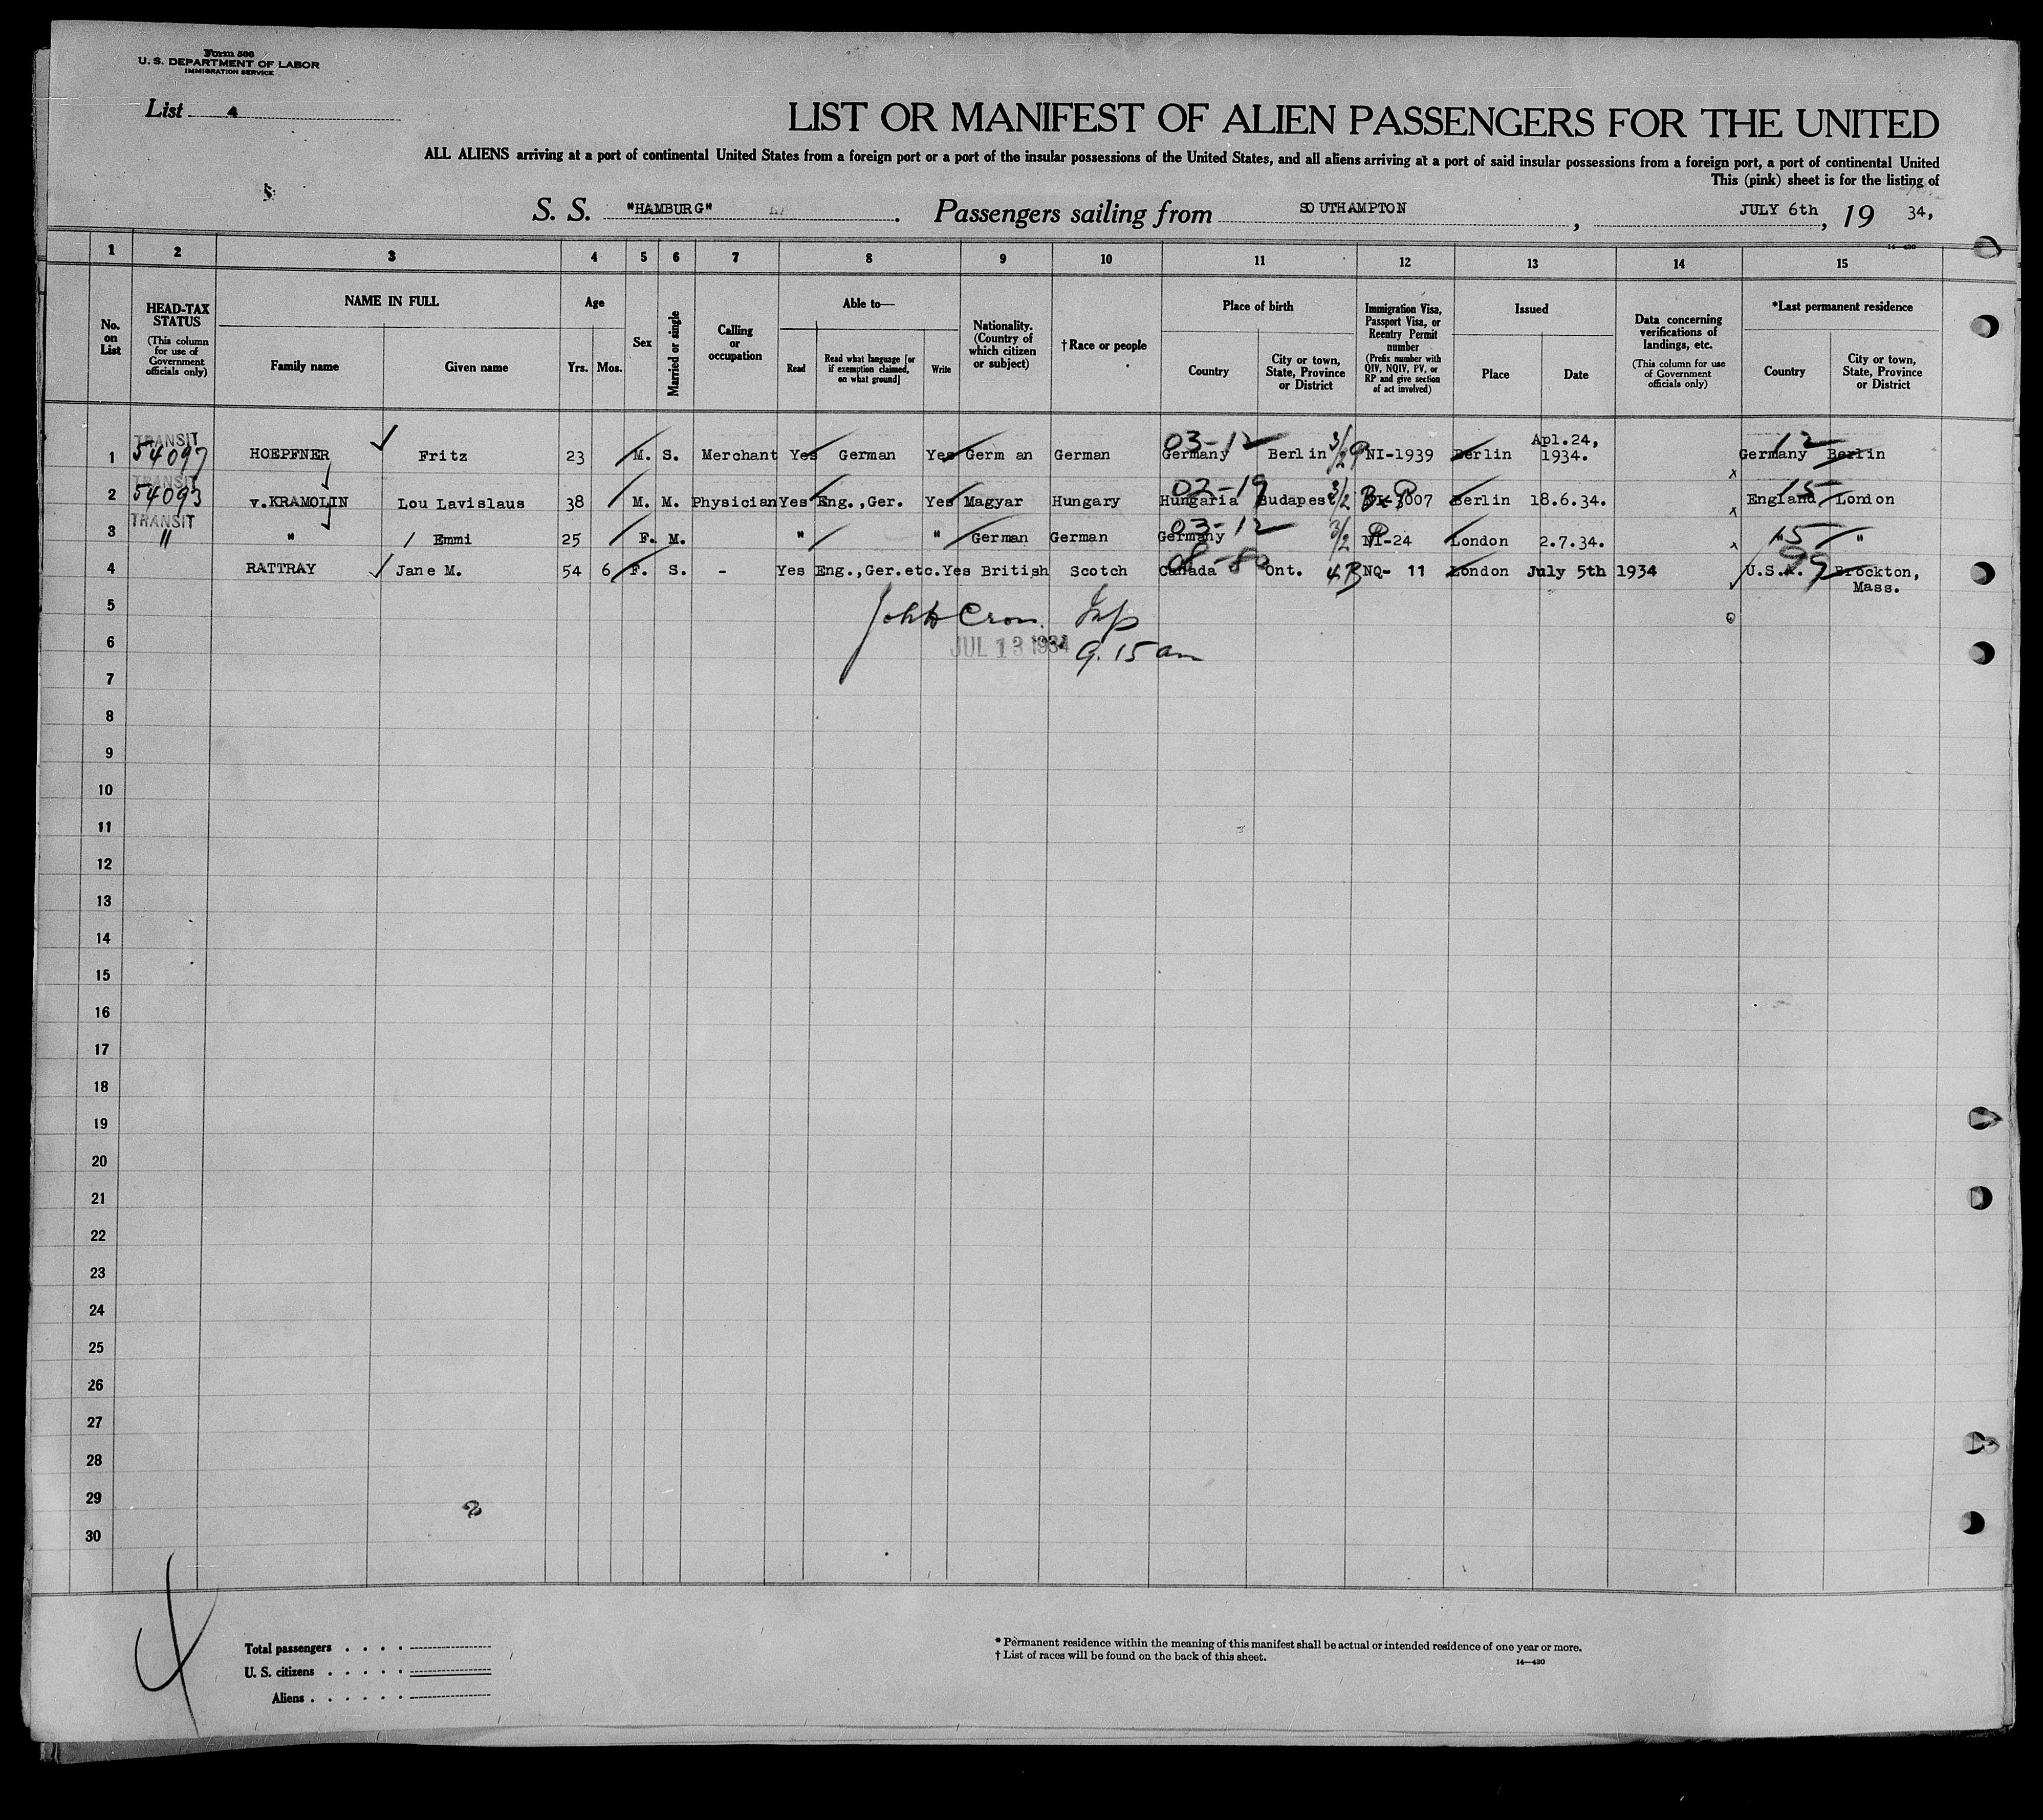 Form 500
U. S. DEPARTMENT OF LABOR
IMMIGRATION SERVICE
List 4
LIST OR MANIFEST OF ALIEN PASSENGERS FOR THE UNITED
ALL ALIENS arriving at a port of continental United States from a foreign port or a port of the insular possessions of the United States, and all aliens arriving at a port of said insular possessions from a foreign port, a port of continental United
This (pink) sheet is for the listing of
S. S. "HAMBURG" . Passengers sailing from SOUTHAMPTON , JULY 6th , 19 34,
14—430
1 2 3 4 5 6 7 8 9 10 11 12 13 14 15
No. on List
HEAD-TAX STATUS
(This column for use of Government officials only)
NAME IN FULL
Family name Given name
Age
Yrs. Mos.
Sex
Married or single
Calling or occupation
Able to—
Read
Read what language [or if exemption claimed, on what ground]
Write
Nationality. (Country of which citizen or subject)
†Race or people
Place of birth
Country
City or town, State, Province or District
Immigration Visa, Passport Visa, or Reentry Permit number
(Prefix number with QIV, NQIV, PV, or RP and give section of act involved)
Issued
Place Date
Data concerning verifications of landings, etc.
(This column for use of Government officials only)
*Last permanent residence
Country
City or town, State, Province or District
TRANSIT 03-12 3/2 Apl.24, 12
1 54097 HOEPFNER Fritz 23 M. S. Merchant Yes German Yes German German Germany Berlin NI-1939 Berlin 1934. Germany Berlin
TRANSIT 03-19 3/2 15
2 54093 v.KRAMOLIN Lou Lavislaus 38 M. M. Physician Yes Eng.,Ger. Yes Magyar Hungary Hungaria Budapest Berlin 18.6.34. England London
TRANSIT 03-12 3/2 15
3 " " Emmi 25 F. M. " " German German Germany NI-24 London 2.7.34. " "
08-80 4B 99
4 RATTRAY Jane M. 54 6 F. S. - Yes Eng.,Ger.etc. Yes British Scotch Canada Ont. NQ- 11 London July 5th 1934 U.S.A. Brockton,
Mass.
5
6 JUL 13 1934 9.15 am
7
8
9
10
11
12
13
14
15
16
17
18
19
20
21
22
23
24
25
26
27
28
29
30
4
Total passengers . . . .
U. S. citizens . . . . .
Aliens . . . . . .
* Permanent residence within the meaning of this manifest shall be actual or intended residence of one year or more.
† List of races will be found on the back of this sheet.
14—430